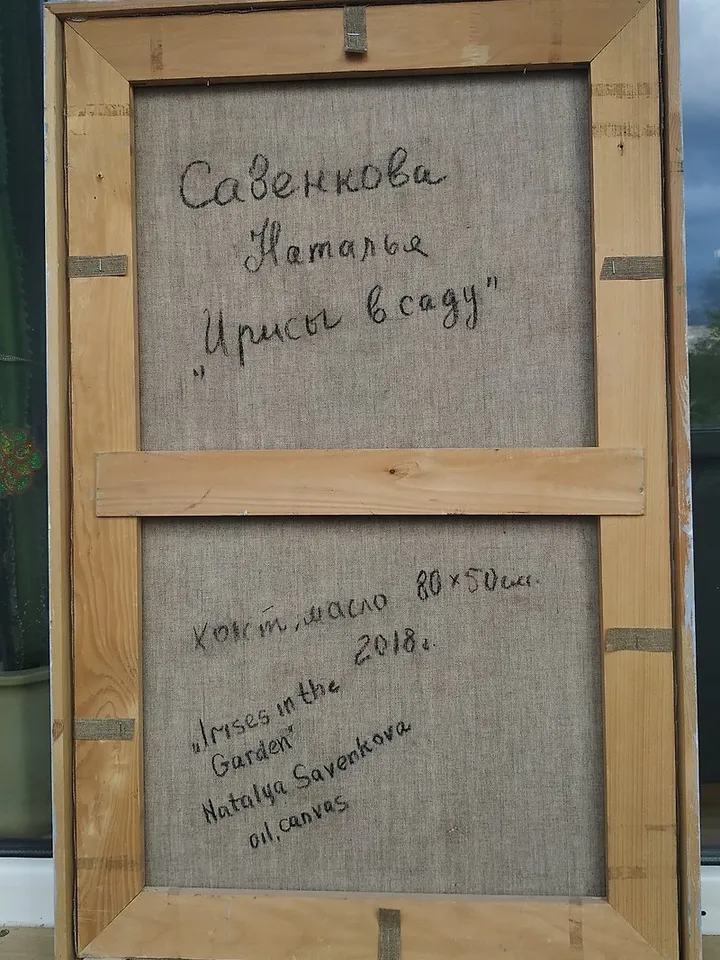 Савенкова
Наталья
"Ирисы в саду"
холст, масло 80×50см.
2018г.
"Irises in the
Garden"
Natalya Savenkova
oil, canvas